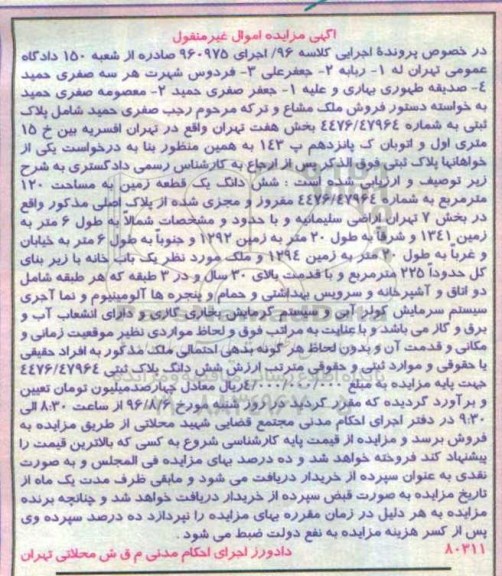 اگهی مزایده اموال غیرمنقول
در خصوص پرونده اجرایی کلاسه ۹۶/ اجرای ۹۶۰۹۷۵ صادره از شعبه ۱۵۰ دادگاه
عمومی تهران له ۱- ربابه ۲- جعفرعلی ۳- فردوس شهرت هر سه صفری حمید
۴- صدیقه طهوری بهاری و علیه ۱- جعفر صفری حمید ۲- معصومه صفری حمید
به خواسته دستور فروش ملک مشاع و ترکه مرحوم رجب صفری حمید شامل پلاک
ثبتی به شماره ۴۴۷۶/۴۷۹۶۴ بخش هفت تهران واقع در تهران افسریه بین خ ۱۵
متری اول و اتوبان ک پانزدهم پ ۱۴۳ به همین منظور بنا به درخواست یکی از
خواهانها پلاک ثبتی فوق الذکر پس از ارجاع به کارشناس رسمی دادگستری به شرح
زیر توصیف و ارزیابی گردیده است : شش دانگ یک قطعه زمین به مساحت ۱۲۰
مترمربع به شماره ۴۴۷۶/۴۷۹۶۴ مفروز و مجزی شده از پلاک اصلی مذکور واقع
در بخش ۷ تهران اراضی سلیمانیه و با حدود و مشخصات شمالا به طول ۶ متر به
زمین ۱۳۴۱ و شرقا به طول ۲۰ متر به زمین ۱۲۹۲ و جنوبا به طول ۶ متر به خیابان
و غربا به طول ۲۰ متر به زمین ۱۲۹۴ و ملک مورد نظر یک باب خانه با زیر بنای
کل حدودا ۲۲۵ مترمربع و با قدمت بالای ۳۰ سال و در ۳ طبقه که هر طبقه شامل
دو اتاق و آشپزخانه و سرویس بهداشتی و حمام و پنجره ها آلومینیوم و نما آجری
سیستم سرمایش کولر آبی و سیستم گرمایش بخاری گازی و دارای انشعاب آب و
برق و گاز می باشد و با عنایت به مراتب فوق و لحاظ مواردی نظیر موقعیت زمانی و
مکانی و قدمت آن و بدون لحاظ هر گونه بدهی احتمالی ملک مذکور به افراد حقیقی
یا حقوقی و موارد ثبتی و حقوقی مترتب ارزش شش دانگ پلاک ثبتی ۴۴۷۶/۴۷۹۶۴
جهت پایه مزایده به مبلغ ریال معادل چهارصدمیلیون تومان تعیین
و برآورد گردیده که مقرر گردیده در روز شنبه مورخ ۹۶/۸/۶ از ساعت ۸:۳۰ الی
۹:۳۰ در دفتر اجرای احکام مدنی مجتمع قضایی شهید محلاتی از طریق مزایده به
فروش برسد و مزایده از قیمت پایه کارشناسی شروع به کسی که بالاترین قیمت را
پیشنهاد کند فروخته خواهد شد و ده درصد بهای مزایده فی المجلس و به صورت
نقدی به عنوان سپرده از خریدار دریافت می شود و مابقی ظرف مدت یک ماه از
تاریخ مزایده به صورت قبض سپرده از خریدار دریافت خواهد شد و چنانچه برنده
مزایده به هر دلیل در زمان مقرره بهای مزایده را نپردازد ده درصد سپرده وی
پس از کسر هزینه مزایده به نفع دولت ضبط می شود .
۸۰۳۱۱ دادورز اجرای احکام مدنی م ق ش محلاتی تهران